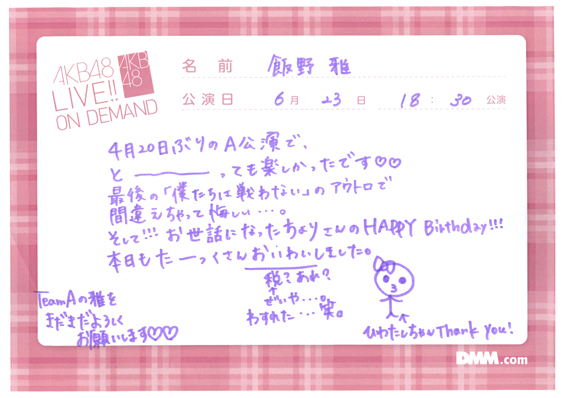 AKB48
LIVE!!
ON DEMAND
AKB
48
名前 飯野 雅
公演日 6月23日 18:30公演
4月20日ぶりのA公演で、
と――――っても楽しかったです♡♡
最後の「僕たちは戦わない」のアウトロで
間違えちゃって悔しい…。
そして!!! お世話になったちよりさんのHAPPY Birthday!!!
本日もたーっくさんおいわいしました。
税?あれ?
ぜいや…。
わすれた…笑。
TeamAの雅を
まだまだよろしく
お願いします♡♡
ひわたしちゃんThank you!
DMM.com